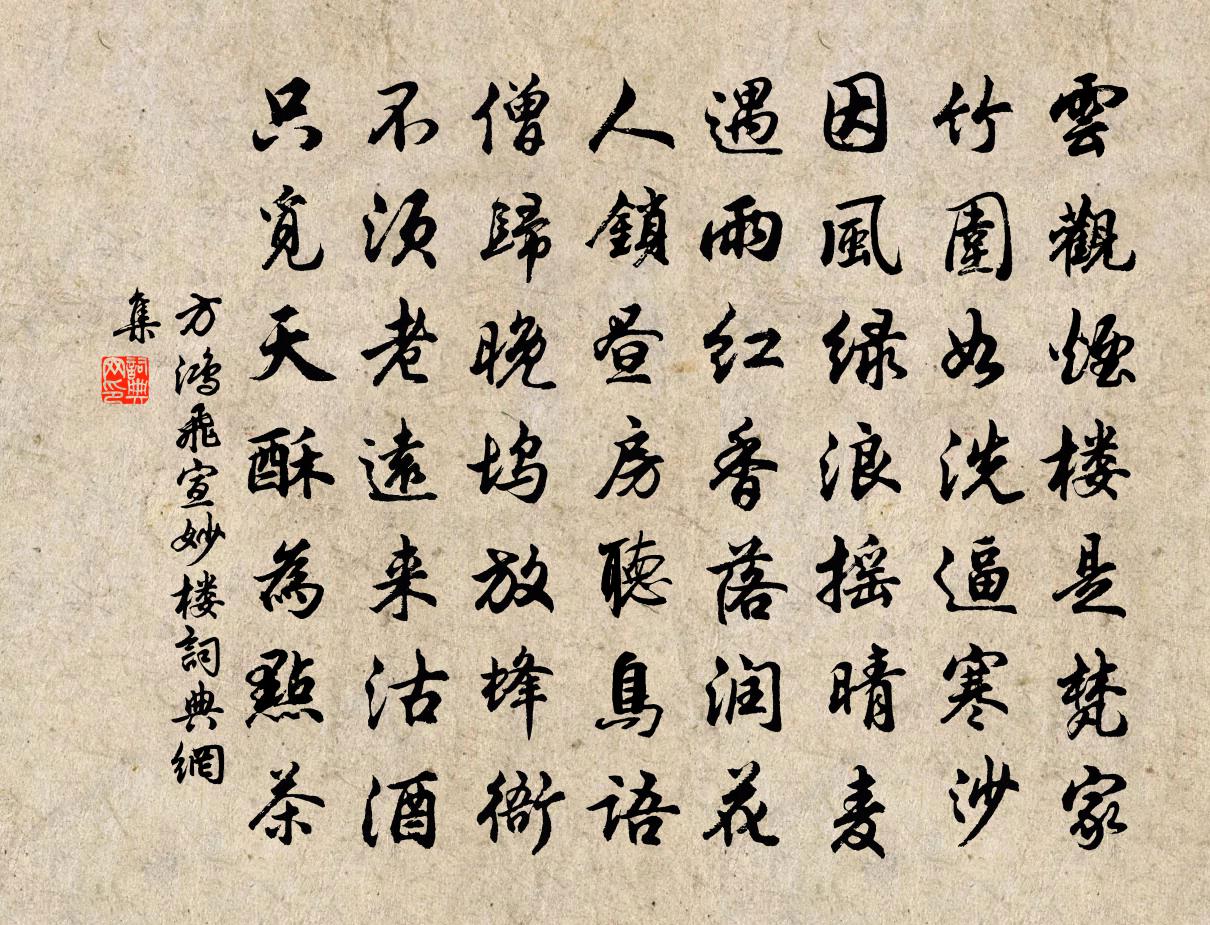 雲觀煙楼是梵家
竹圍如洗逼寒沙
因風緑浪摇晴麦
遇雨红香落润花
人鎖昼房聽鳥语
僧歸晚坞放蜂衙
不须老遠来沽酒
只覓天酥為點茶
方鴻飛宣妙楼詞典網
集
詞典
网印